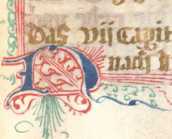 Das vij Capit
Nach d